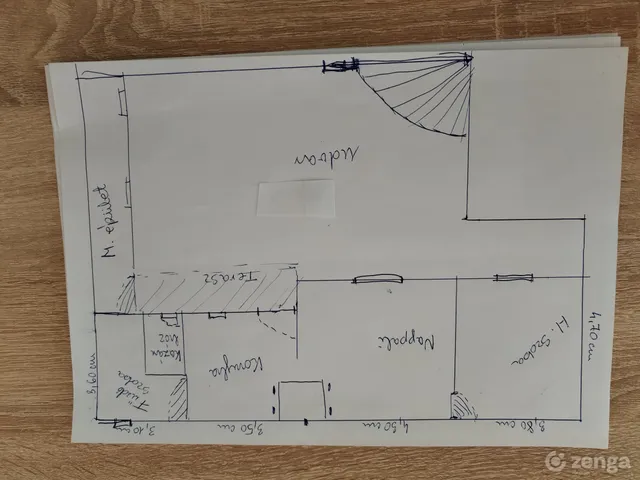 udvar
M. épület
Terasz
Kazán
ház
Fürdő
szoba
Konyha
Nappali
H. szoba
4,70 cm
3,60 cm
3,10 cm
3,50 cm
4,50 cm
3,80 cm
zenga